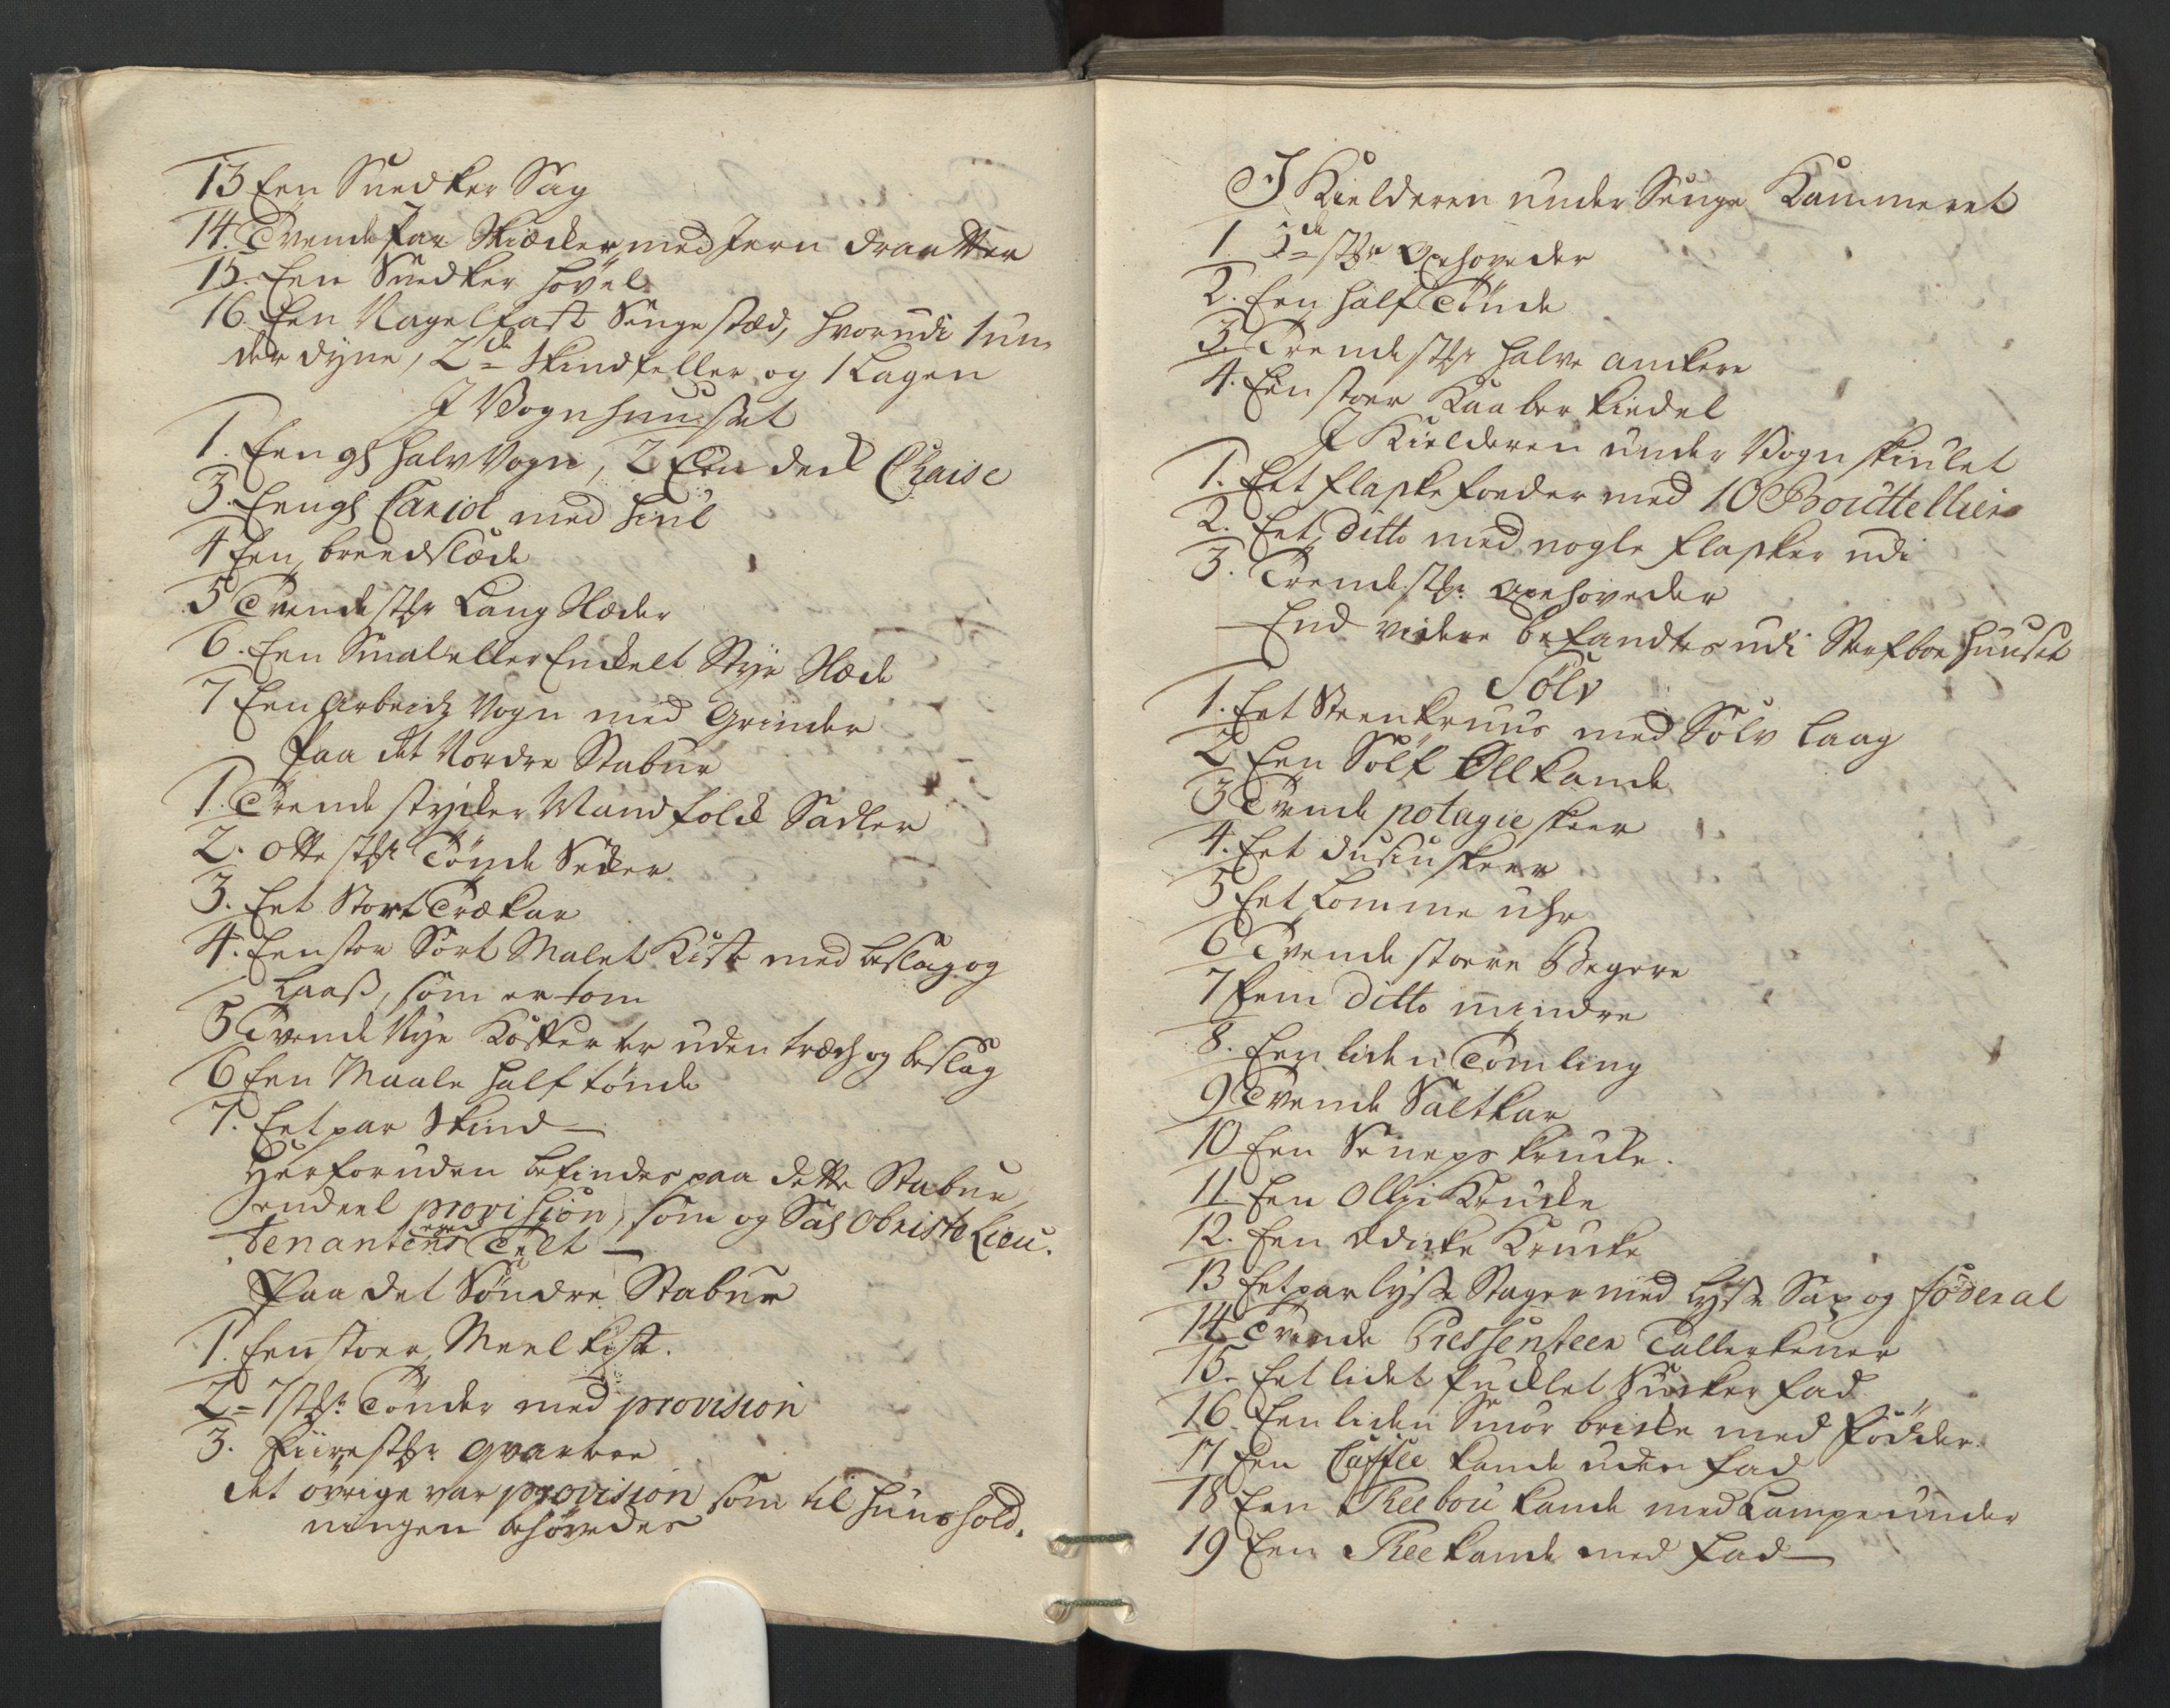 13 Een Snedker Sag
14. Tvende Par Skiæcker med Jern Dragtter
15. Een Snedker Høvel
16 Een Nagelfast Sengestæd, hvorudi 1 un-
der dyne, 2de Skindfeller og 1 Lagen
I Vognhuuset
1. Een gl halv Vogn, 2 Een deck Chaise
3. Een gl Cariol med Hiul
4 Een breedslæde
5 Tvende stkr Lang Slæder
6. Een Smal eller Enckelt Styr Slæde
7 Een Arbeids Vogn med Grinder
Paa det Nordre Stabur
1. Trende stycker Mandfolck Sadler
2. Otte stkr Tønde Secker
3. Eet Stort Træ kar
4. Een stor Sort Malet Kiste med beslag og
Laas, som er tom
5 Tvende Nye Kofferter uden træk og beslag
6 Een Maale half tønde
7. Eet par Skind
Herforuden befindes paa dette Stabur
endeel provision, som og Sal Obriste Lieu-
tenantens Telt
Paa det Søndre Stabur
1. Een stoer Meel Kiste.
2 = 7 stkr Tønder med provision
3. Fiire stkr qvarter
det øvrige var provision som til Huushold-
ningen behøvedes
I Kielderen under Senge Kammeret
1 3de stkr Oxehoveder
2. Een half Tønde
3. Trende stkr halve anckere
4. Een stoer Kaaber Kiedel
I Kielderen under Vognskiulet
1. Eet flaske foeder med 10 Bouttellier
2. Eet ditto med nogle flasker udi
3. Trende stkr oxehoveder
End videre befandtes udi Stefboe Huuset
Sølv
1. Eet Steen Kruus med Sølv Laag
2 Een Sølf Øll Kande
3 Tvende potagie skeer
4. Eet dusin skeer
5 Eet Lomme uhr
6 Tvende stoere Begere
7 Fem ditto mindre
8. Een liden Tømling
9 Tvende Saltkar
10 Een Seneps Krucke.
11 Een Ollie Krucke
12. Een Edicke Krucke
13 Eet par lyse Stager med Lyse Sax og foderal
14 Tvende Pressenteer Tallerkener
15. Eet lidet Pucklet Sucker fad
16. Een liden Smør bricke med Fødder.
17 Een Caffee Kande uden fad
18 Een Theebou Kande med Lampe under
19 Een Thee Kande med fad